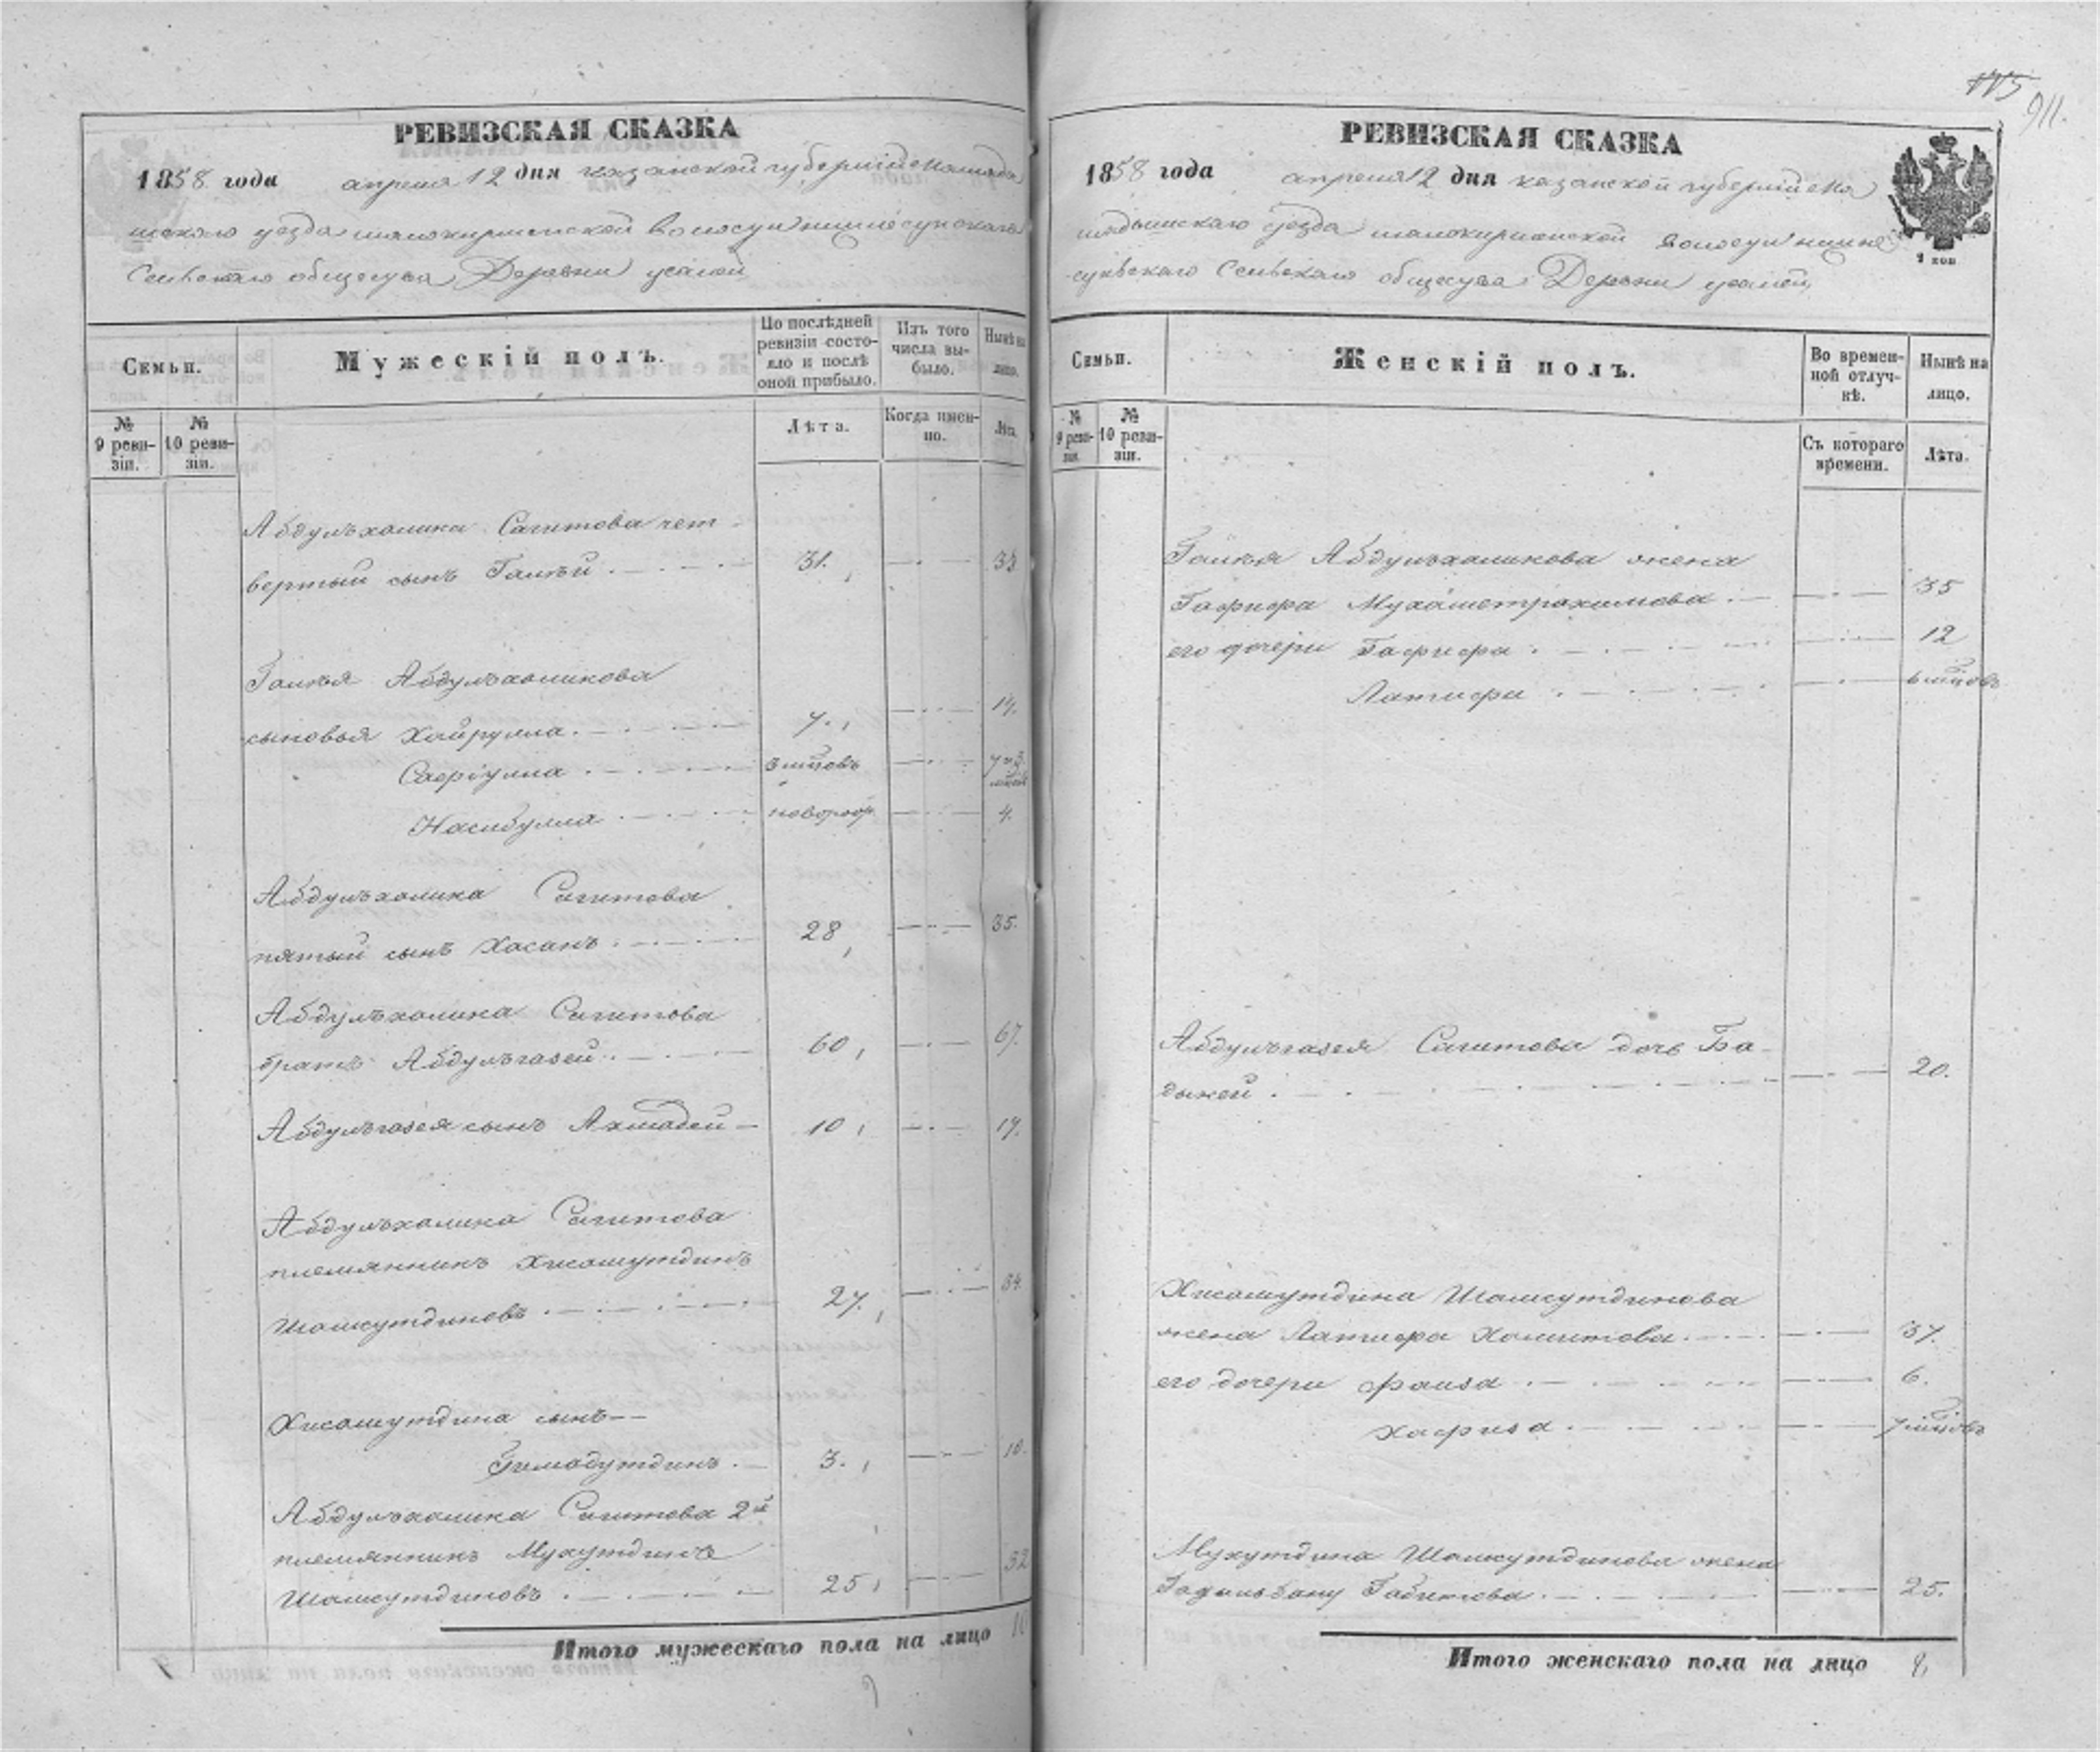 РЕВИЗСКАЯ СКАЗКА
1858 года апреля 12 дня казанской губернiи мамады
шскаго уезда малокирменской волости нижнесунскаго
Сельскаго общества Деревни усалей
Семьи.
Мужескiй полъ.
По послѣдней ревизiи состояло и послѣ оной прибыло.
Изъ того числа выбыло.
Нынѣ на лицо.
№ 9 ревизiи.
№ 10 ревизiи.
Лѣта.
Когда именно.
Лѣта.
Абдулъхалика Сагитова чет
вертый сынъ Галѣй 31. 33
Галѣя Абдулъхаликова
сыновья Хайрулла 7. 14.
Сафiулла 3 мцовъ 7 и 3 мцов
Насибулла новорож 4.
Абдулъхалика Сагитова
пятый сынъ Хасанъ 28 35.
Абдулъхалика Сагитова
братъ Абдулъгазей 60 67.
Абдулъгазея сынъ Ахмадей 10 17.
Абдулъхалика Сагитова
племянникъ Хисамутдинъ
Шамсутдиновъ 27. 34.
Хисамутдина сынъ
Гимадутдинъ 3. 10.
Абдулъхалика Сагитова 2й
племянникъ Мухутдинъ
Шамсутдиновъ 25 32
Итого мужескаго пола на лицо 10
115
911.
РЕВИЗСКАЯ СКАЗКА
1858 года апреля 12 дня казанской губернiи ма
мадышскаго уезда малокирменской волости нижне
сунскаго Сельскаго общества Деревни усалей
1 коп
Семьи.
Женскiй полъ.
Во временной отлучкѣ.
Нынѣ на лицо.
№ 9 ревизiи.
№ 10 ревизiи.
Съ котораго времени.
Лѣта.
Галѣя Абдулъхаликова жена
Гафифа Мухаметрахимова 35
его дочери Гафифа 12
Латифа 6 мцовъ
Абдулъгазея Сагитова дочь Ба
дыжей 20.
Хисамутдина Шамсутдинова
жена Латифа Хамитова 37.
его дочери Фаиза 6.
Хафиза 7 мцовъ
Мухутдина Шамсутдинова жена
Гадыльбану Габитова 25.
Итого женскаго пола на лицо 8